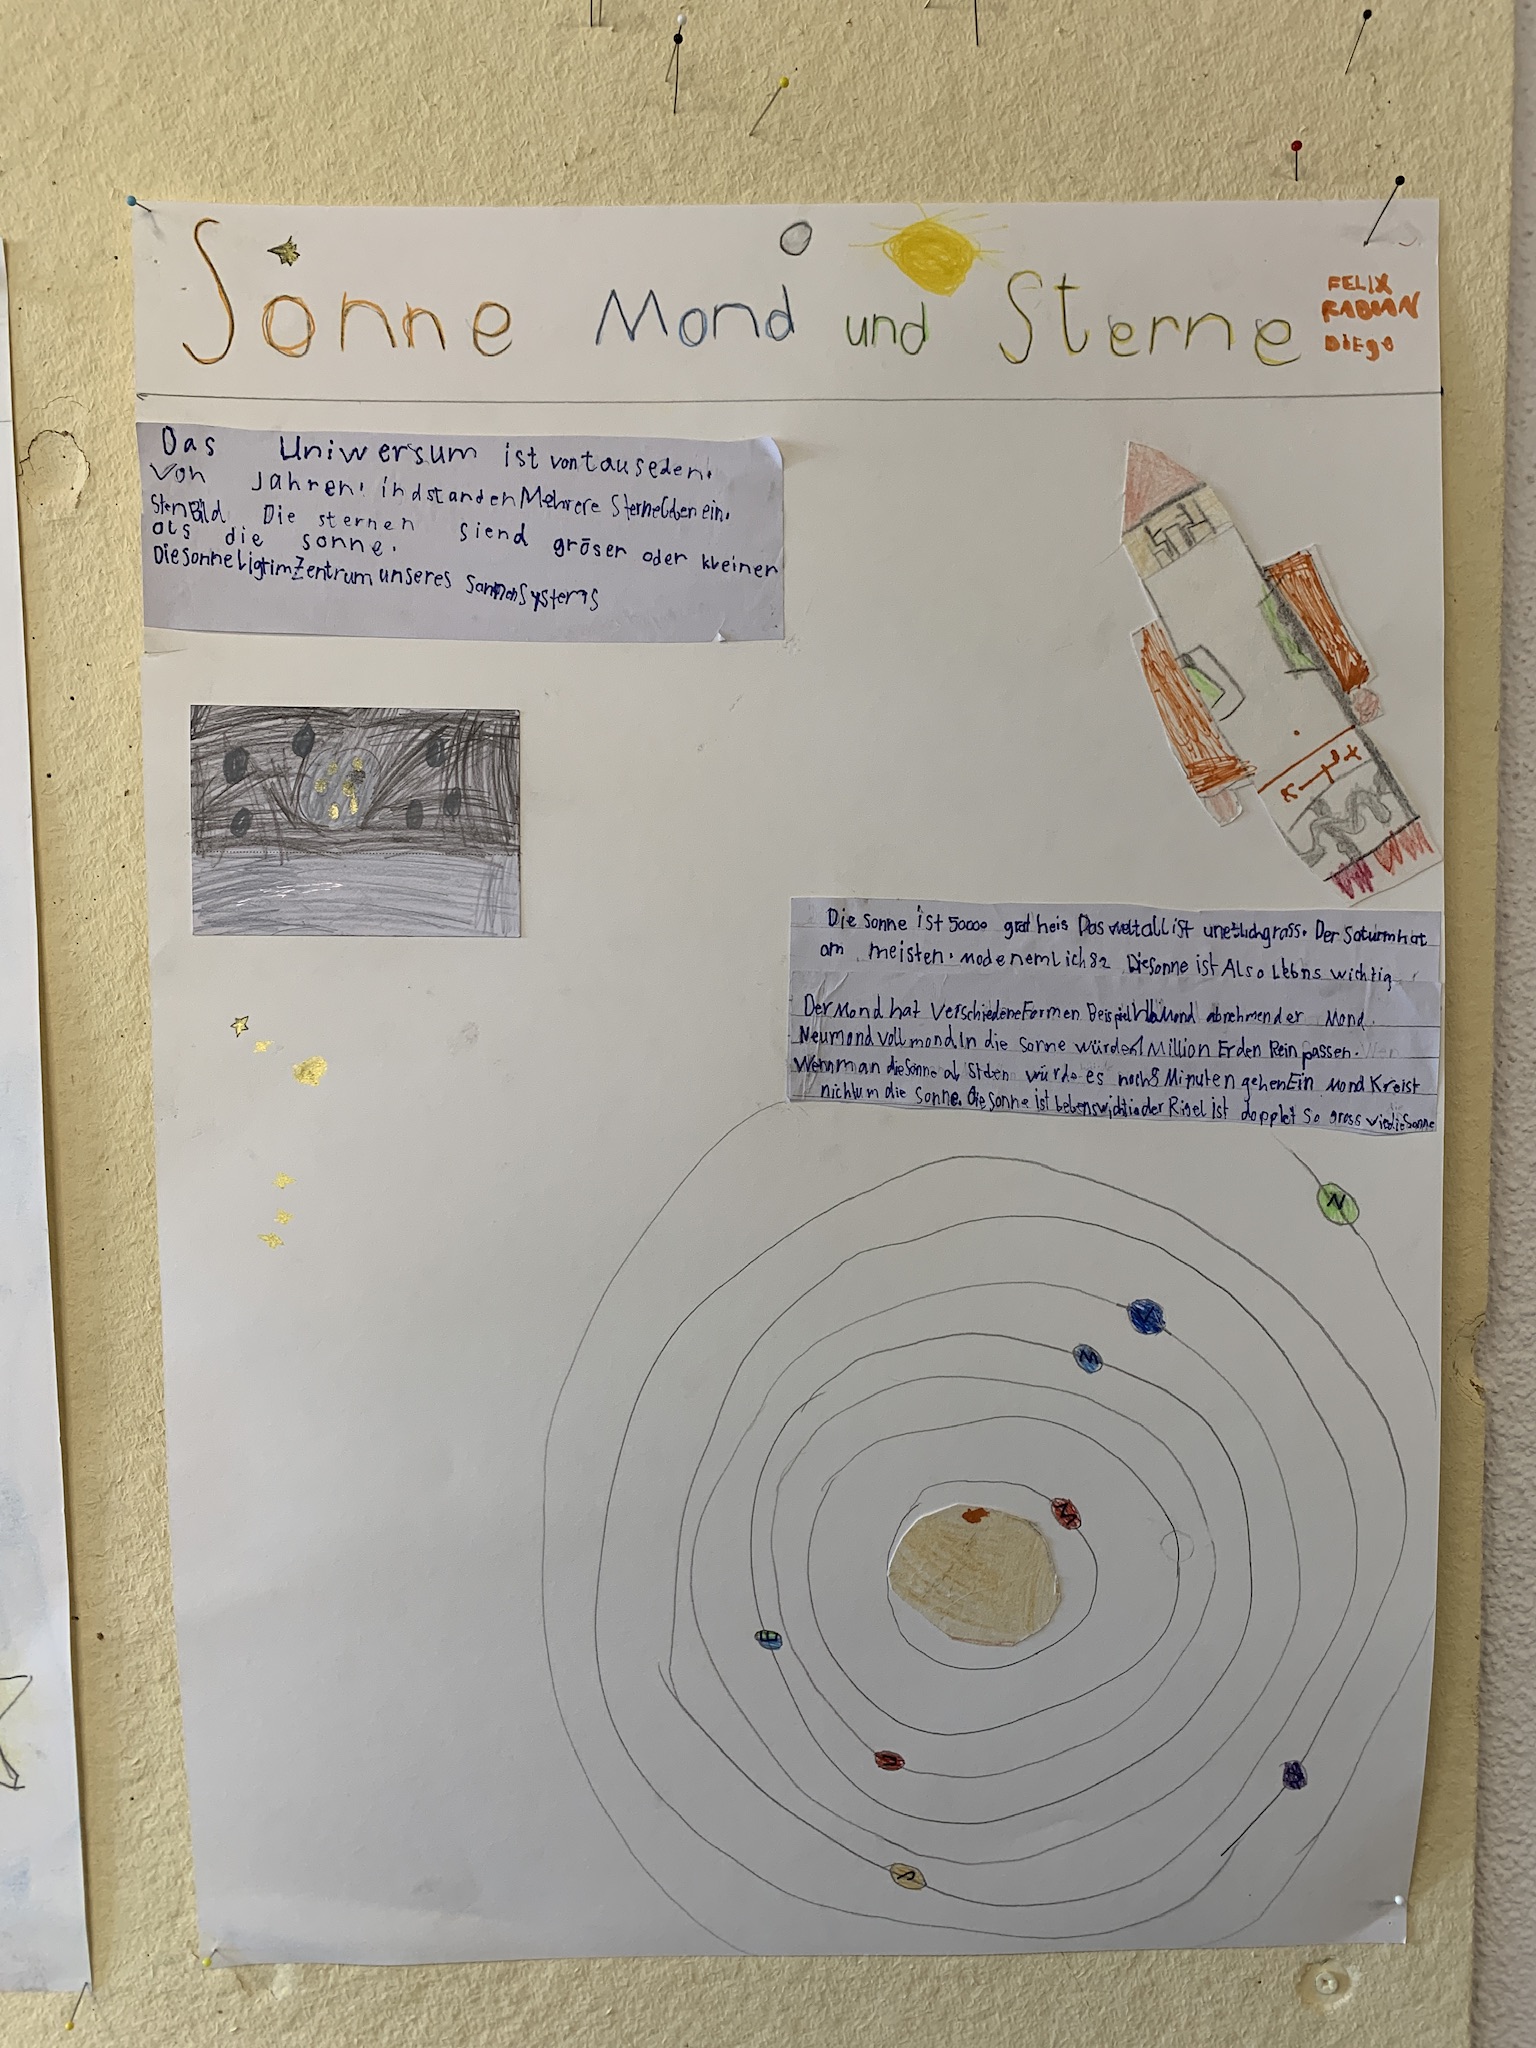 Sonne Mond und Sterne
FELIX
FABIAN
DIEGO
Das Uniwersum ist von tauseden.
von Jahren. indstanden Mehrere Sternebben ein.
StenBild Die sternen siend gröser oder kleiner
als die sonne.
Die sonne Ligt im Zentrum unseres sonnensystems
Die Sonne ist 50000 grad heis Das weltall ist unetlichgross. Der Saturn hat
am meisten. Mode nemlich 82 Die sonne ist Also Lebns wichtig.
Der Mond hat Verschiedene Formen Beispiel Mond abnehmender Mond.
Neumond vollmond. In die sonne würden 1 Million Erden Rein passen.
Wenn man die Sonne würde es noch 8 Minuten gehen Ein Mond Kreist
nicht um die Sonne. Die Sonne ist der Rigel ist dopplet so gross wie die Sonne
N
M
E
S